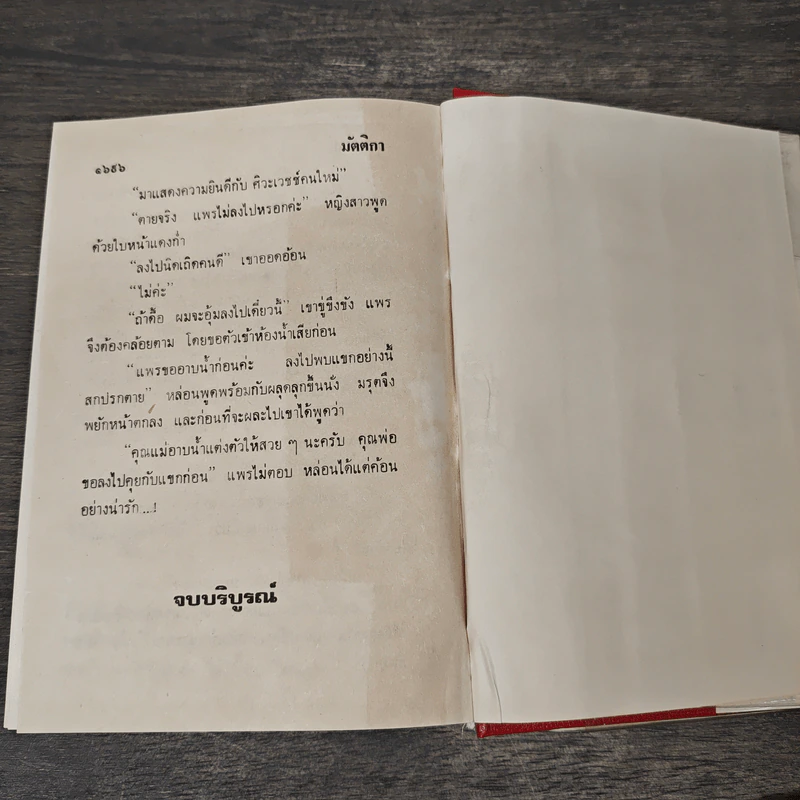 มัตติกา
๑๖๙๖
“มาแสดงความยินดีกับ ศิวะเวชช์คนใหม่”
“ตายจริง แพรไม่ลงไปหรอกค่ะ” หญิงสาวพูด
ด้วยใบหน้าแดงก่ำ
“ลงไปนิดเถิดคนดี” เขาออดอ้อน
“ไม่ค่ะ”
“ถ้าดื้อ ผมจะอุ้มลงไปเดี๋ยวนี้” เขาขู่ขึงขัง แพร
จึงต้องคล้อยตาม โดยขอตัวเข้าห้องน้ำเสียก่อน
“แพรขออาบน้ำก่อนค่ะ ลงไปพบแขกอย่างนี้
สกปรกตาย” หล่อนพูดพร้อมกับผลุดลุกขึ้นนั่ง มรุตจึง
พยักหน้าตกลง และก่อนที่จะผละไปเขาได้พูดว่า
“คุณแม่อาบน้ำแต่งตัวให้สวย ๆ นะครับ คุณพ่อ
ขอลงไปคุยกับแขกก่อน” แพรไม่ตอบ หล่อนได้แต่ค้อน
อย่างน่ารัก...!
จบบริบูรณ์